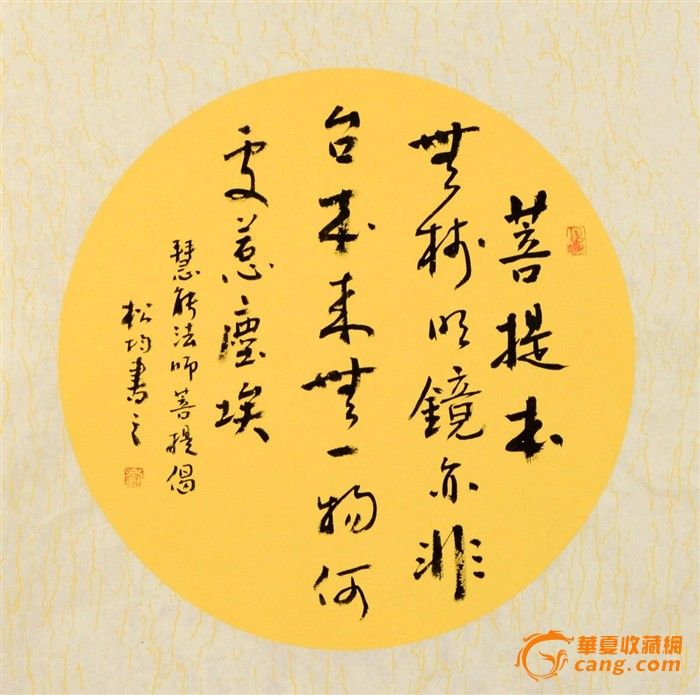 菩提本
無树明鏡亦非
台本来無一物何
處惹塵埃
慧能法师菩提偈
松均書之
華夏收藏網
cang.com